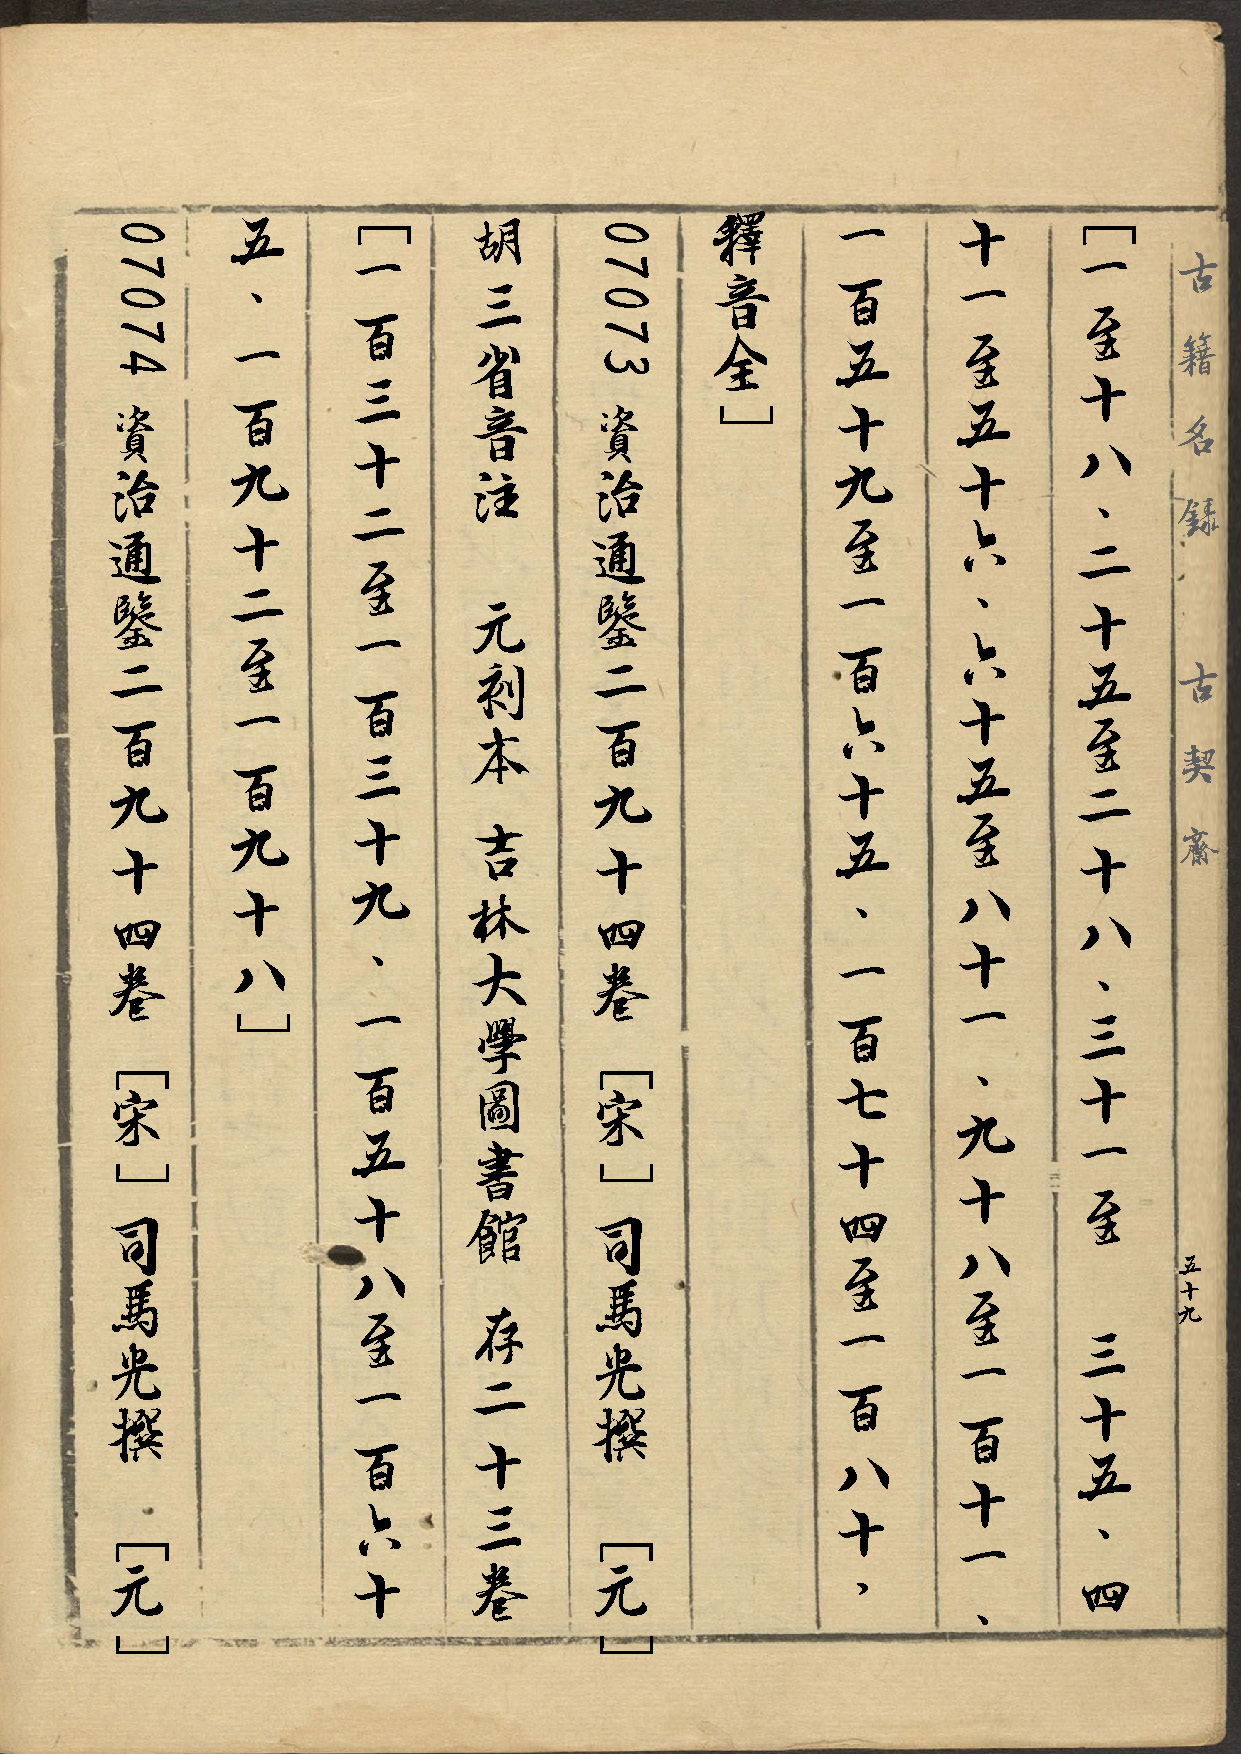 古籍名録 古契齋
五十九
[一至十八、二十五至二十八、三十一至 三十五、四
十一至五十六、六十五至八十一、九十八至一百十一、
一百五十九至一百六十五、一百七十四至一百八十，
釋音全]
07073 資治通鑒二百九十四卷 [宋] 司馬光撰 [元]
胡三省音注 元刻本 吉林大學圖書館 存二十三卷
[一百三十二至一百三十九、一百五十八至一百六十
五、一百九十二至一百九十八]
07074 資治通鑒二百九十四卷 [宋] 司馬光撰 [元]